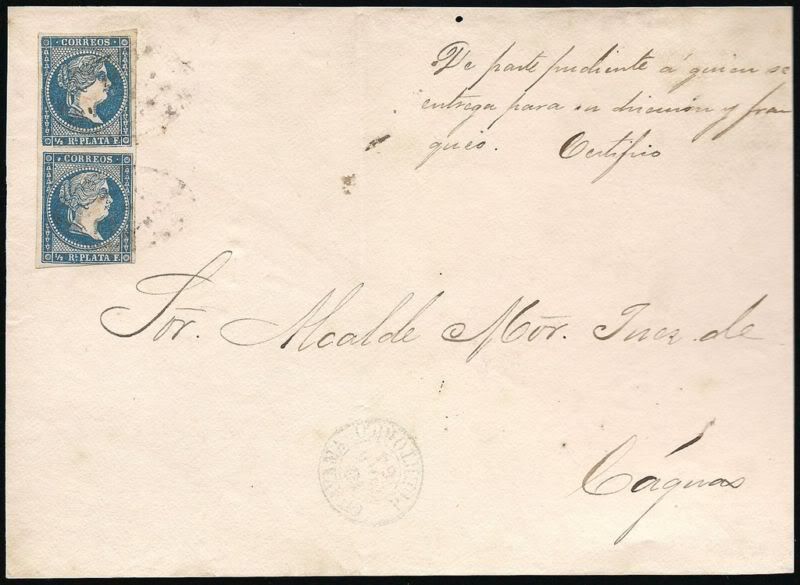 CORREOS
½ Rl. PLATA F.
CORREOS
½ Rl. PLATA F.
De parte pudiente á quien se
entrega para su dirección y fran
queo. Certifico
Sor. Alcalde Mor. Juez de
Cáguas